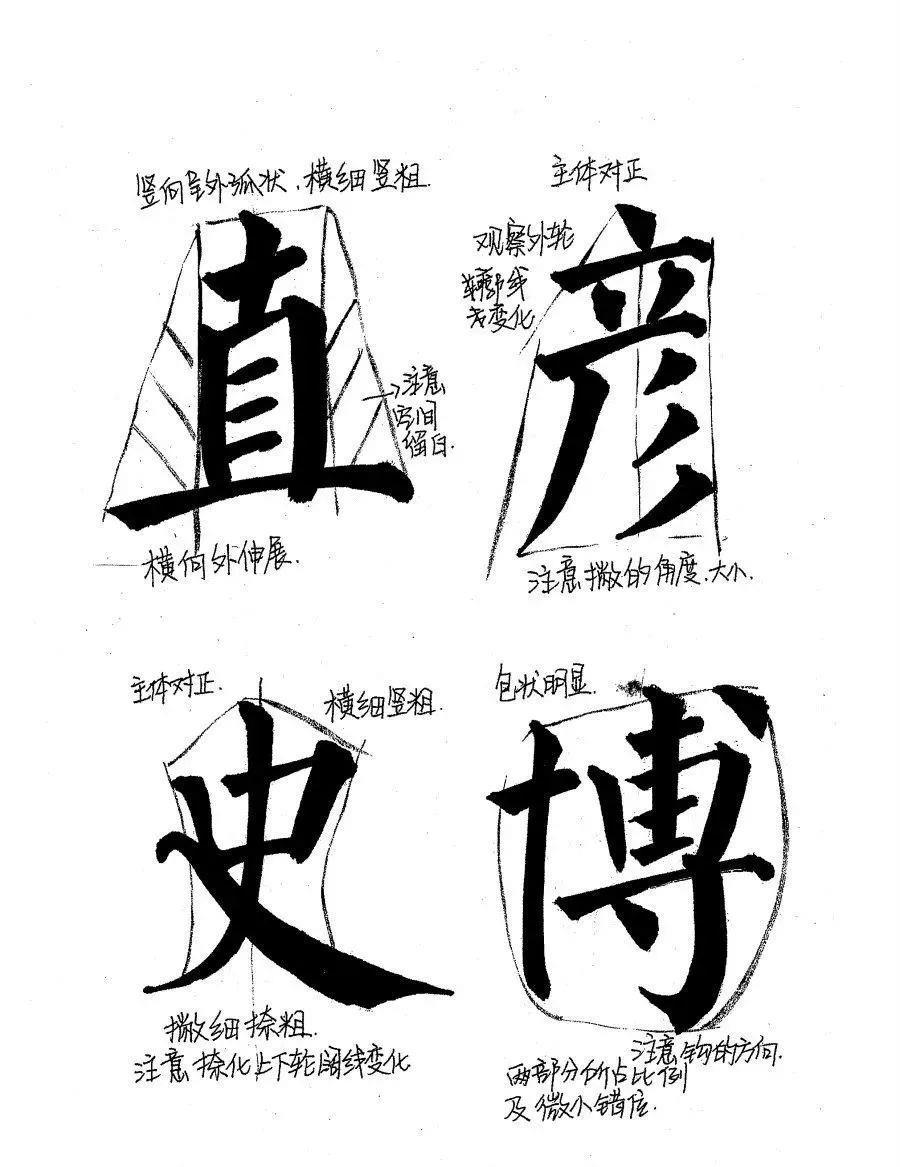 竖向呈外弧状、横细竖粗.
直
注意
空间
留白.
横向外伸展.
主体对正
观察外轮
廓线
变化
彦
注意撇的角度.大小.
主体对正.
横细竖粗.
史
撇细捺粗.
注意捺化上下轮阔线变化
包状明显.
博
注意钩的方向.
两部分所占比例
及微小错位.